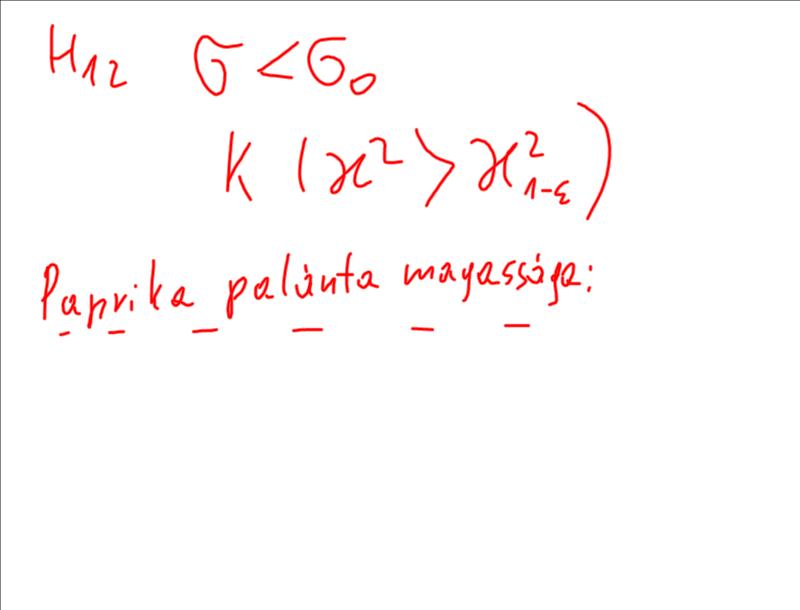 H₁₂ σ < σ₀
K (χ² > χ²₁₋ε)
Paprika palánta magassága: